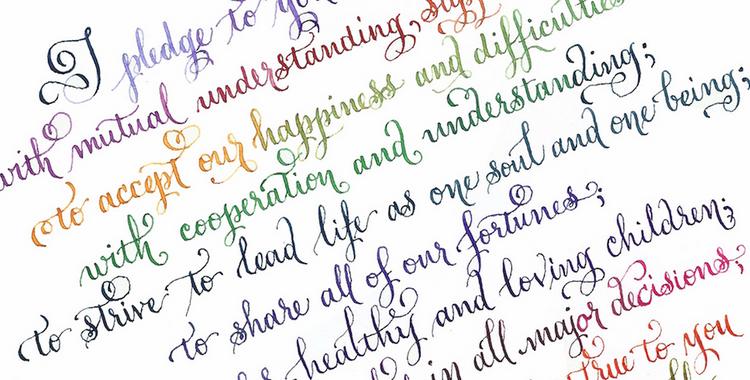 I pledge to you
with mutual understanding,
to accept our happiness and difficulties
with cooperation and understanding;
to strive to lead life as one soul and one being;
to share all of our fortunes;
healthy and loving children;
in all major decisions;
true to you